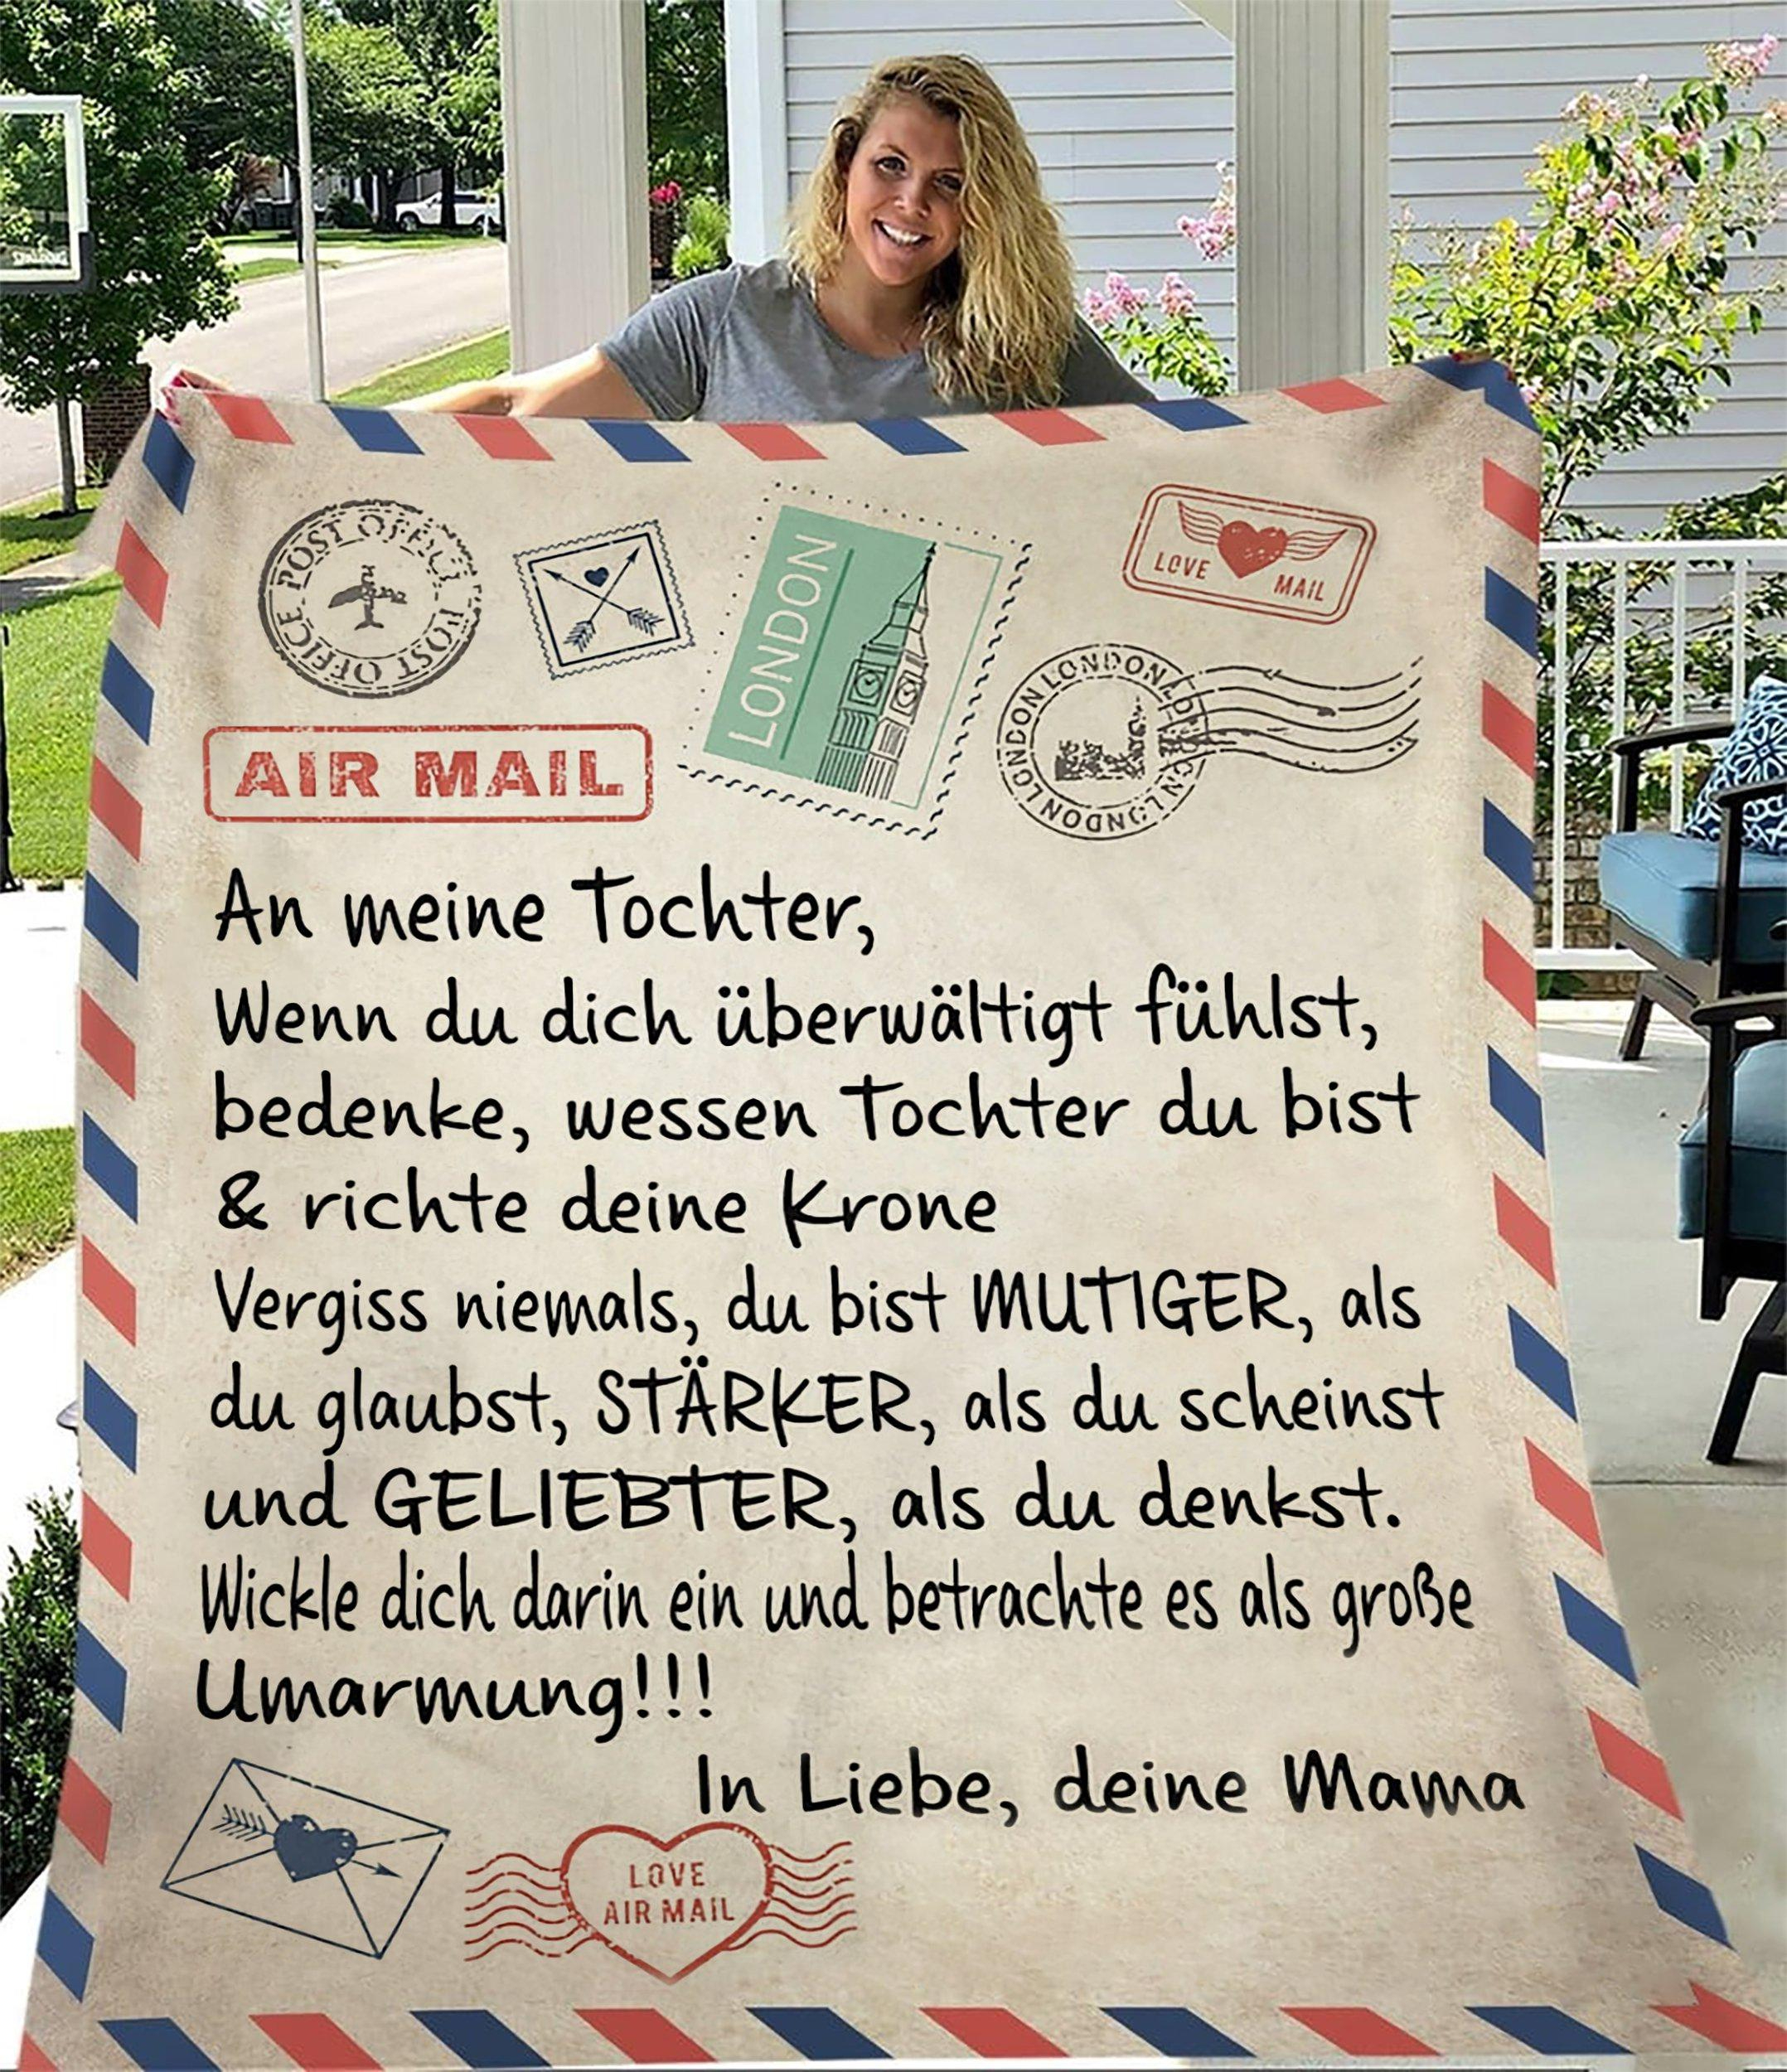 POST OFFICE POST OFFICE
LONDON
LOVE MAIL
LONDON LONDON LONDON LONDON
AIR MAIL
An meine Tochter,
Wenn du dich überwältigt fühlst,
bedenke, wessen Tochter du bist
& richte deine Krone
Vergiss niemals, du bist MUTIGER, als
du glaubst, STÄRKER, als du scheinst
und GELIEBTER, als du denkst.
Wickle dich darin ein und betrachte es als große
Umarmung!!!
In Liebe, deine Mama
LOVE
AIR MAIL